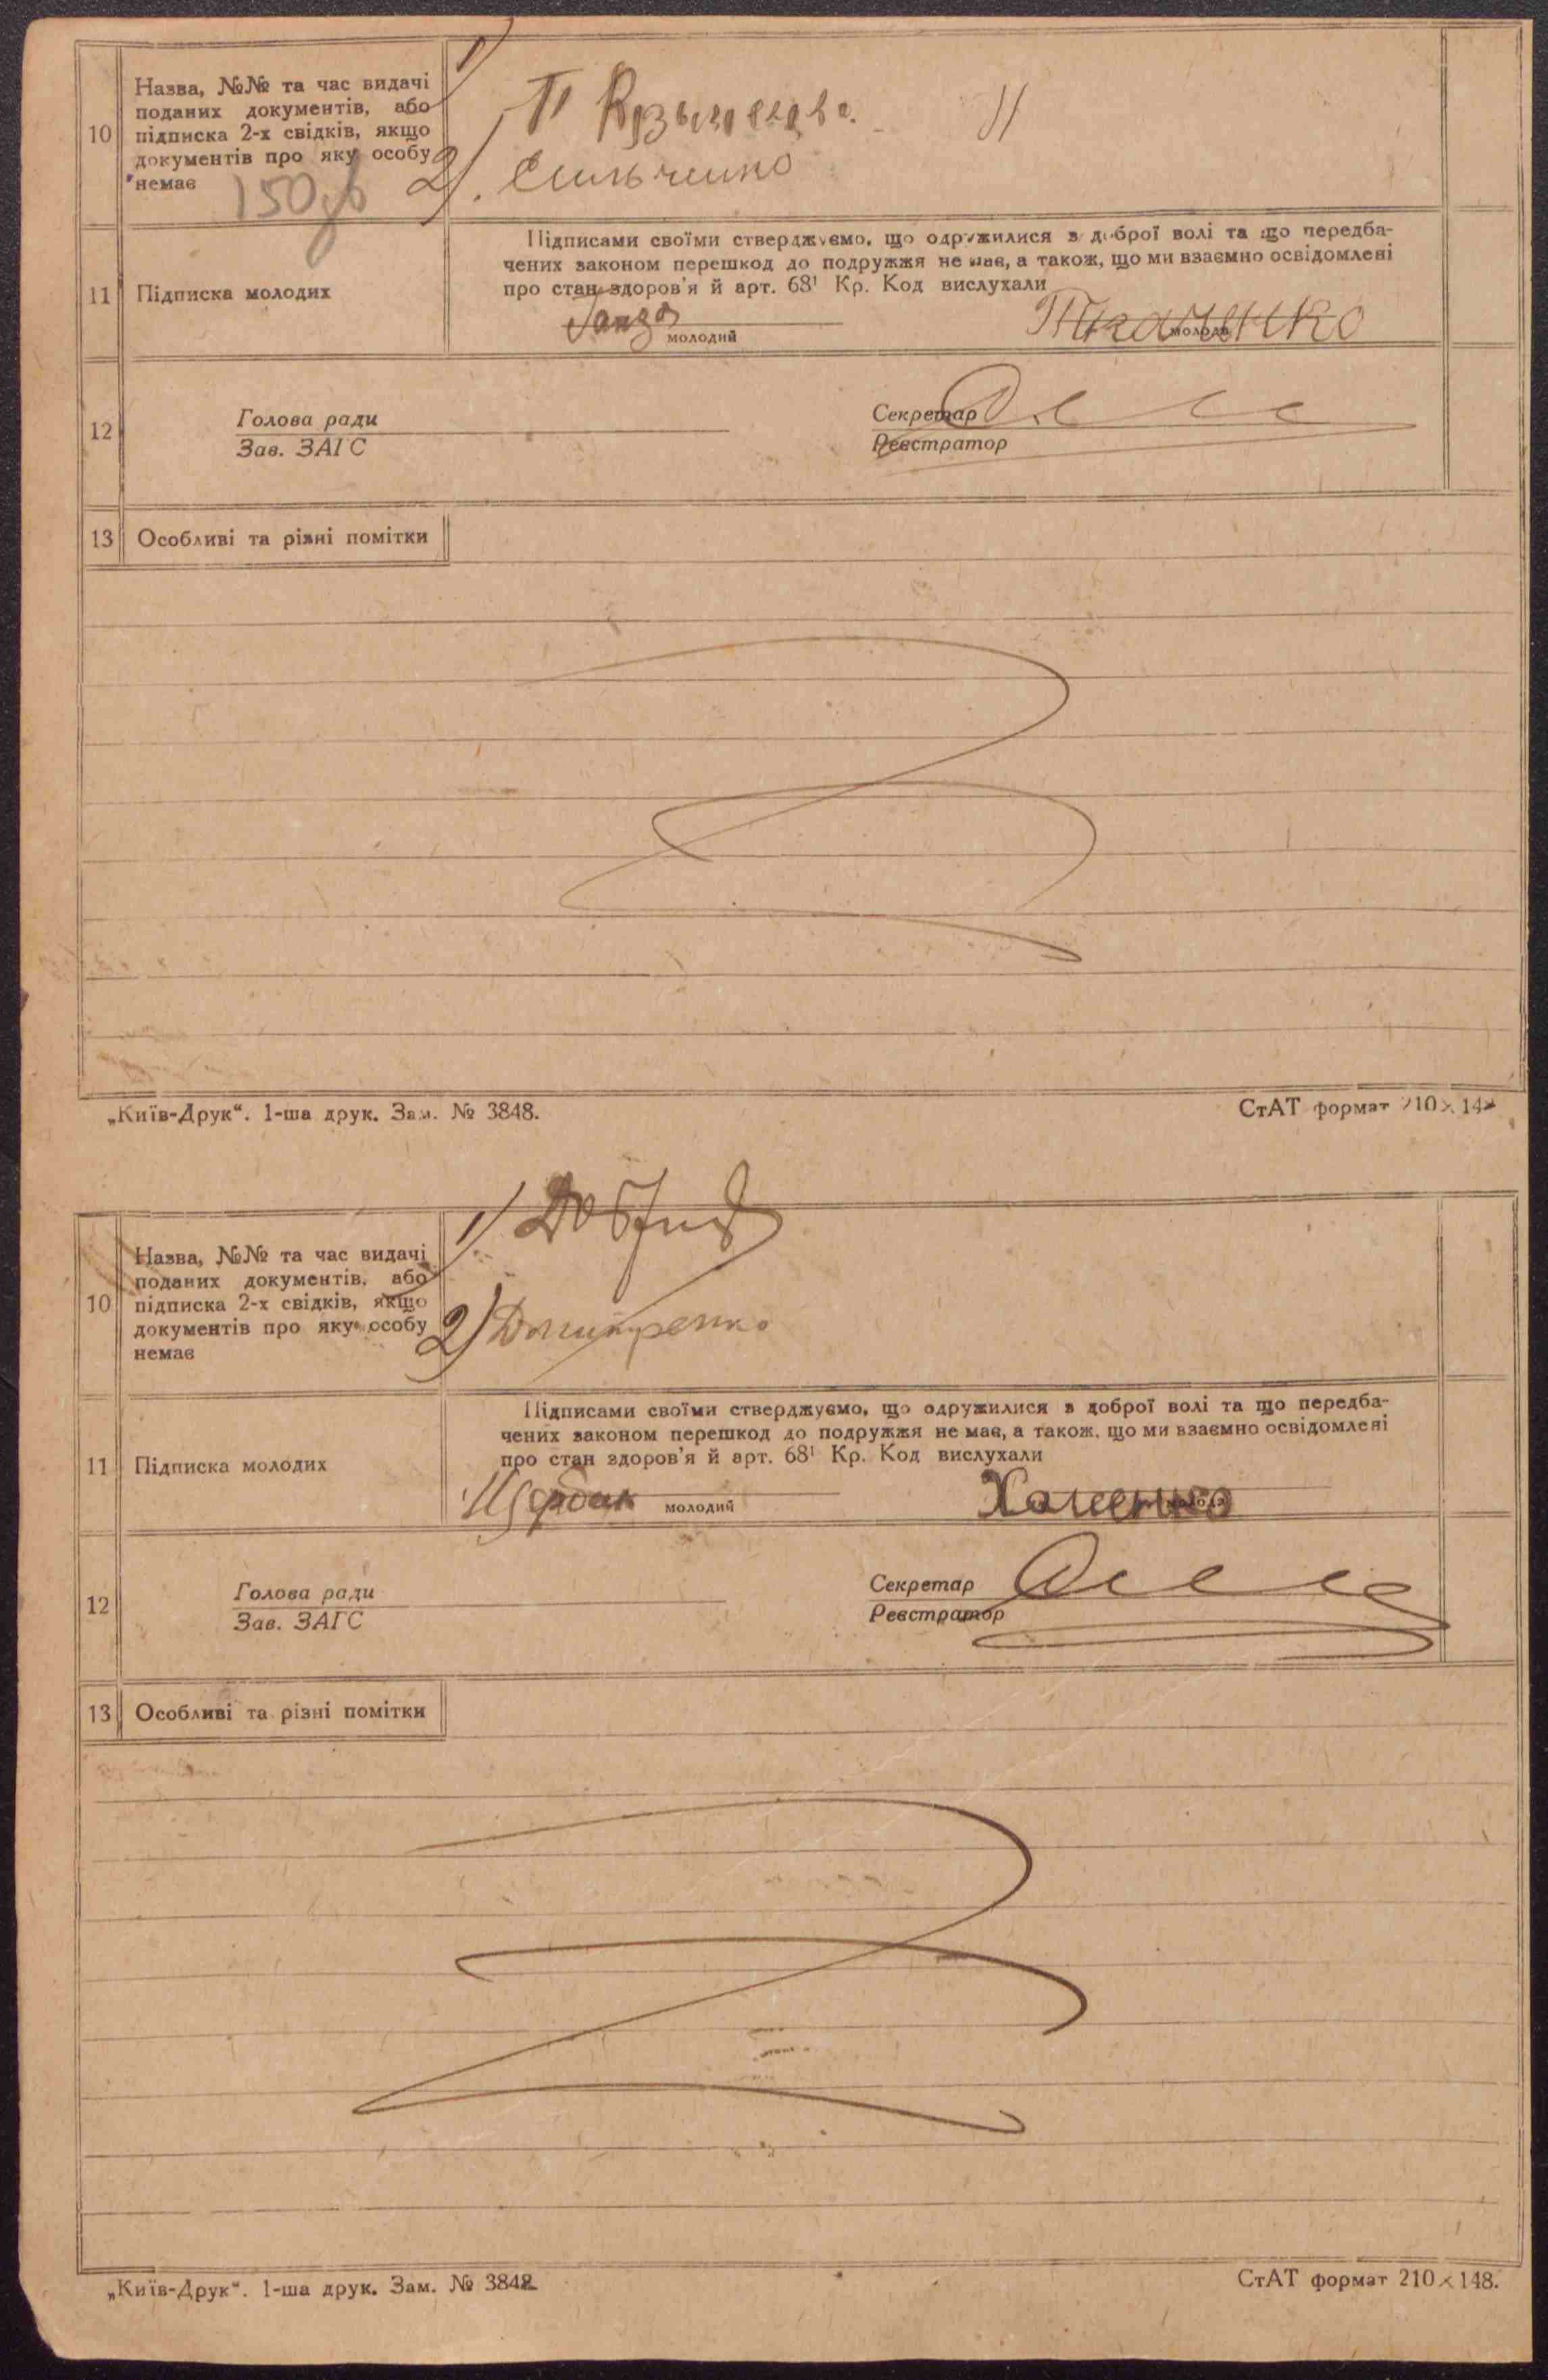 1)
10
Назва, №№ та час видачі
поданих документів, або
підписка 2-х свідків, якщо
документів про яку особу
немає
150
2). Сильченко
Підписами своїми стверджуємо, що одружилися з доброї волі та що передба-
чених законом перешкод до подружжя не має, а також, що ми взаємно освідомлені
про стан здоров'я й арт. 68¹ Кр. Код вислухали
11
Підписка молодих
Ганза
молодий
Ткаченко
молода
12
Голова ради
Зав. ЗАГС
Секретар
Реєстратор
13
Особливі та різні помітки
„Київ-Друк“. 1-ша друк. Зам. № 3848.
СтАТ формат 210×148
1)
10
Назва, №№ та час видачі
поданих документів, або
підписка 2-х свідків, якщо
документів про яку особу
немає
2) Дмитренко
Підписами своїми стверджуємо, що одружилися з доброї волі та що передба-
чених законом перешкод до подружжя не має, а також, що ми взаємно освідомлені
про стан здоров'я й арт. 68¹ Кр. Код вислухали
11
Підписка молодих
Щербак
молодий
Хоменко
молода
12
Голова ради
Зав. ЗАГС
Секретар
Реєстратор
13
Особливі та різні помітки
„Київ-Друк“. 1-ша друк. Зам. № 3848.
СтАТ формат 210×148.